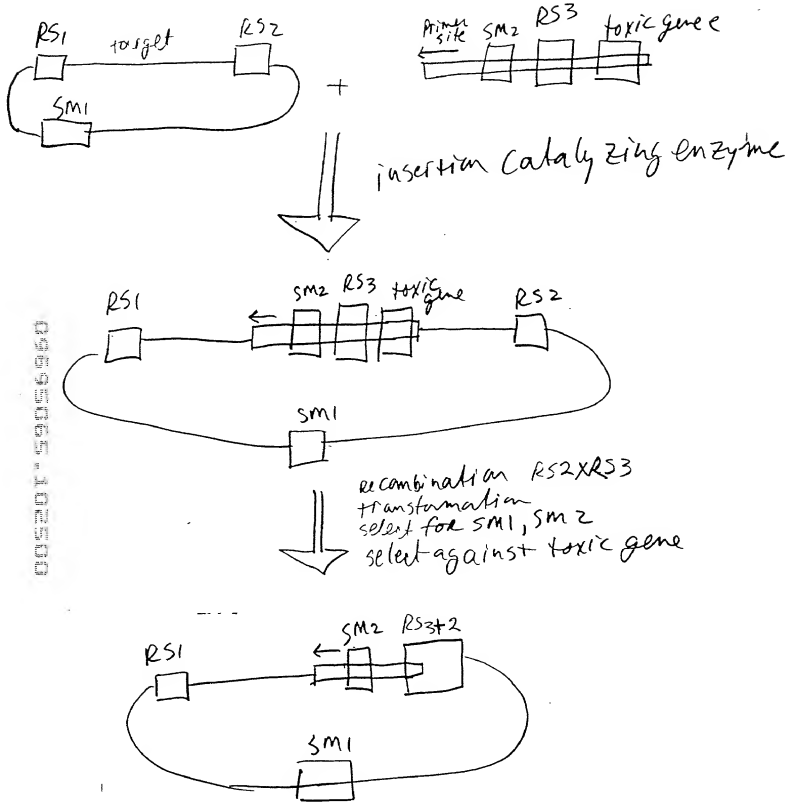 RS1
target
RS2
SM1
+
Primer
site
SM2
RS3
toxic gene e
insertion catalyzing enzyme
RS1
SM2
RS3
toxic
gene
RS2
SM1
recombination RS2XRS3
transformation
select for SM1, SM2
select against toxic gene
RS1
SM2
RS3+2
SM1
09695065.102500